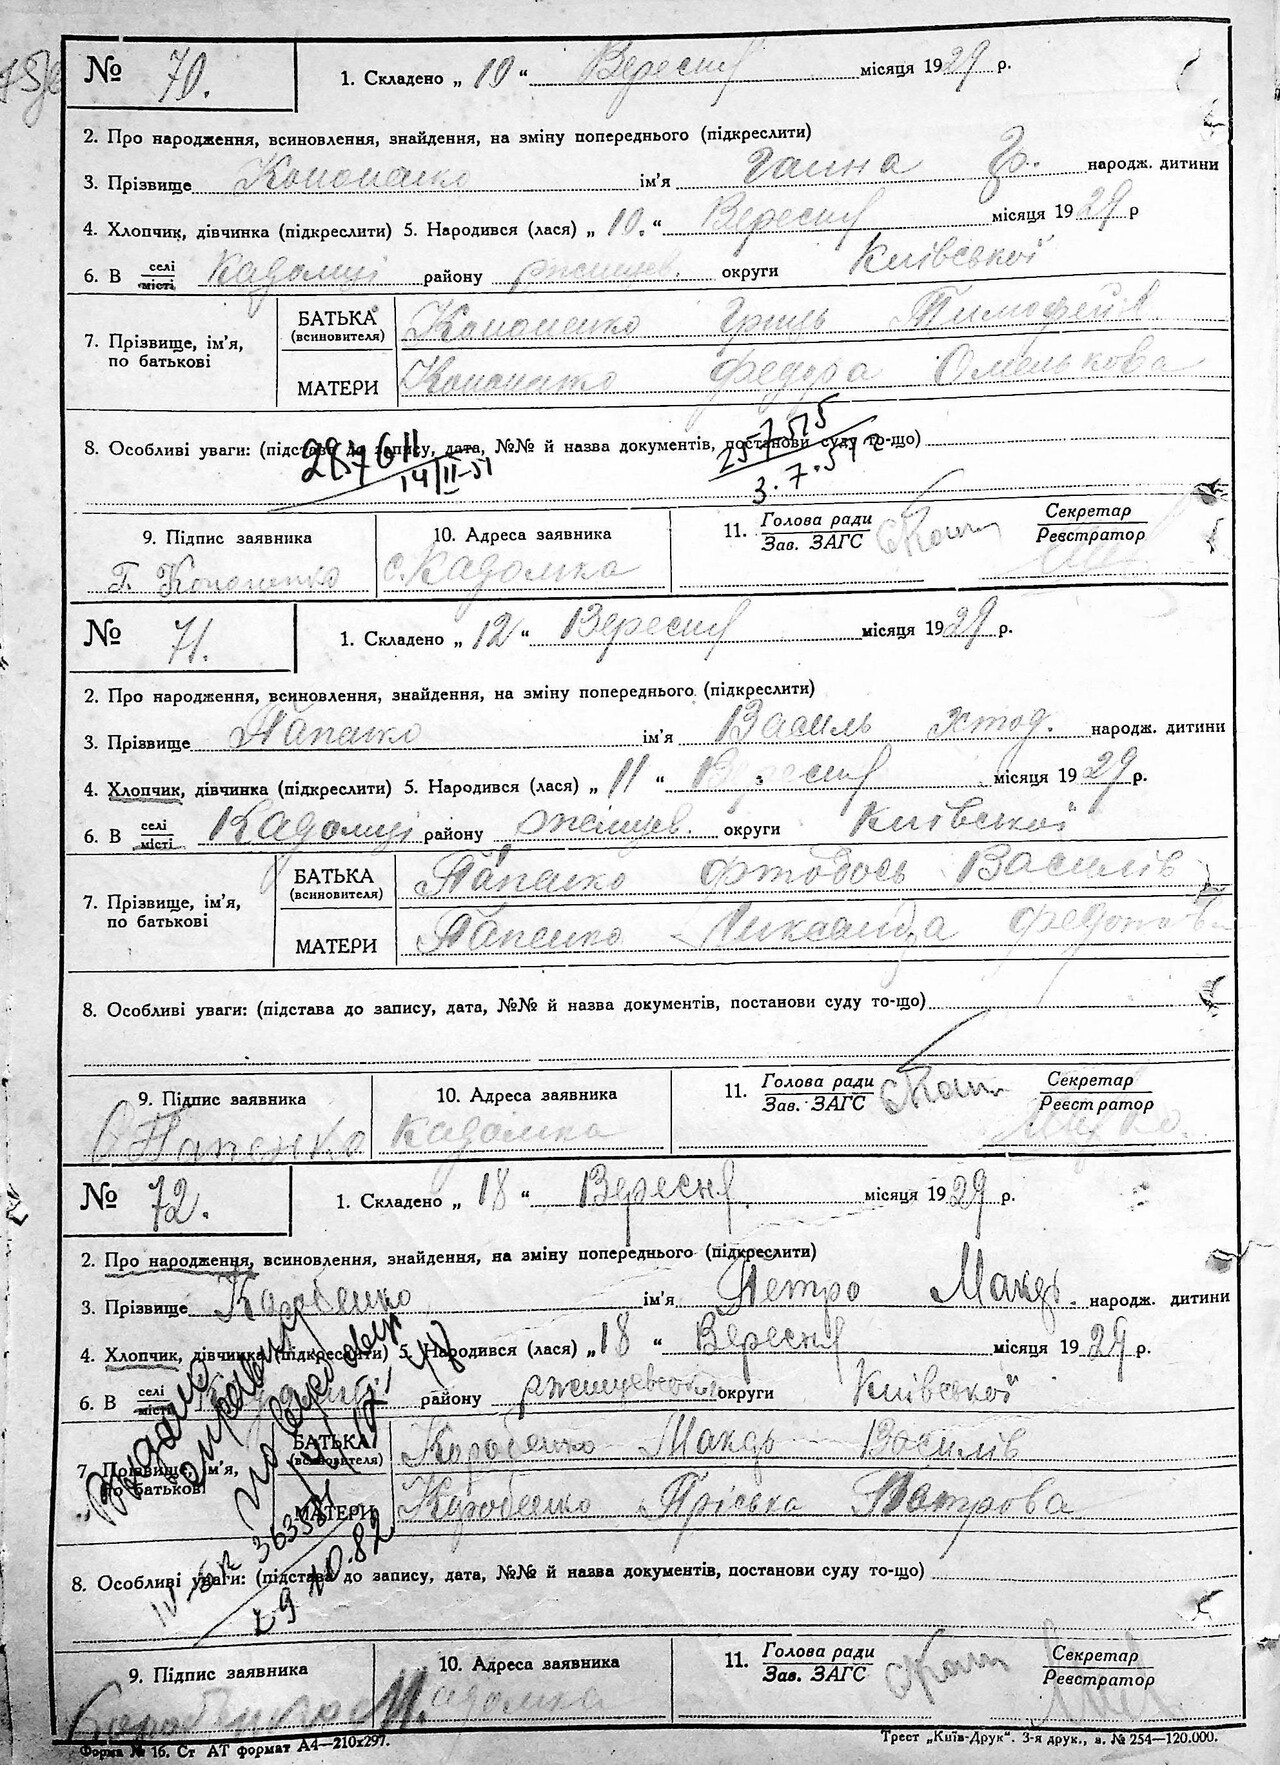 № 70. 1. Складено „ 10 “ Вересня місяця 1929 р.
2. Про народження, всиновлення, знайдення, на зміну попереднього (підкреслити)
3. Прізвище Кононенко ім'я Ганна Гр. народж. дитини
4. Хлопчик, дівчинка (підкреслити) 5. Народився (лася) „ 10. “ Вересня місяця 1929 р
6. В селі місті Кадомці району ржищев. округи Київської
7. Прізвище, ім'я, по батькові
БАТЬКА (всиновителя) Кононенко Гриць Тимофейів
МАТЕРИ Кононенко Федора Омелькова
8. Особливі уваги: (підстава до запису, дата, №№ й назва документів, постанови суду то-що)
287611 257515
14/II-51 3.7.51
9. Підпис заявника 10. Адреса заявника 11. Голова ради Зав. ЗАГС Секретар Реєстратор
Г. Кононенко с. Кадомка
№ 71. 1. Складено „ 12 “ Вересня місяця 1929 р.
2. Про народження, всиновлення, знайдення, на зміну попереднього (підкреслити)
3. Прізвище Папенко ім'я Василь народж. дитини
4. Хлопчик, дівчинка (підкреслити) 5. Народився (лася) „ 11 “ Вересня місяця 1929 р.
6. В селі місті Кадомці району ржищев. округи Київської
7. Прізвище, ім'я, по батькові
БАТЬКА (всиновителя) Папенко Фтодось Василів
МАТЕРИ Папенко
8. Особливі уваги: (підстава до запису, дата, №№ й назва документів, постанови суду то-що)
9. Підпис заявника 10. Адреса заявника 11. Голова ради Зав. ЗАГС Секретар Реєстратор
Папенко Кадомка
№ 72. 1. Складено „ 18 “ Вересня місяця 1929 р.
2. Про народження, всиновлення, знайдення, на зміну попереднього (підкреслити)
3. Прізвище Каробенко ім'я Петро Макар. народж. дитини
4. Хлопчик, дівчинка (підкреслити) 5. Народився (лася) „ 18 “ Вересня місяця 1929 р.
6. В селі місті району ржищевськ округи Київської
7. Прізвище, ім'я, по батькові
БАТЬКА (всиновителя) Коробенко Макар Василів
МАТЕРИ Коробенко Пріська Петрова
8. Особливі уваги: (підстава до запису, дата, №№ й назва документів, постанови суду то-що)
9. Підпис заявника 10. Адреса заявника 11. Голова ради Зав. ЗАГС Секретар Реєстратор
Кадомка
Форма № 16. Ст АТ формат А4—210х297. Трест „Київ-Друк“. 3-я друк., з. № 254—120.000.